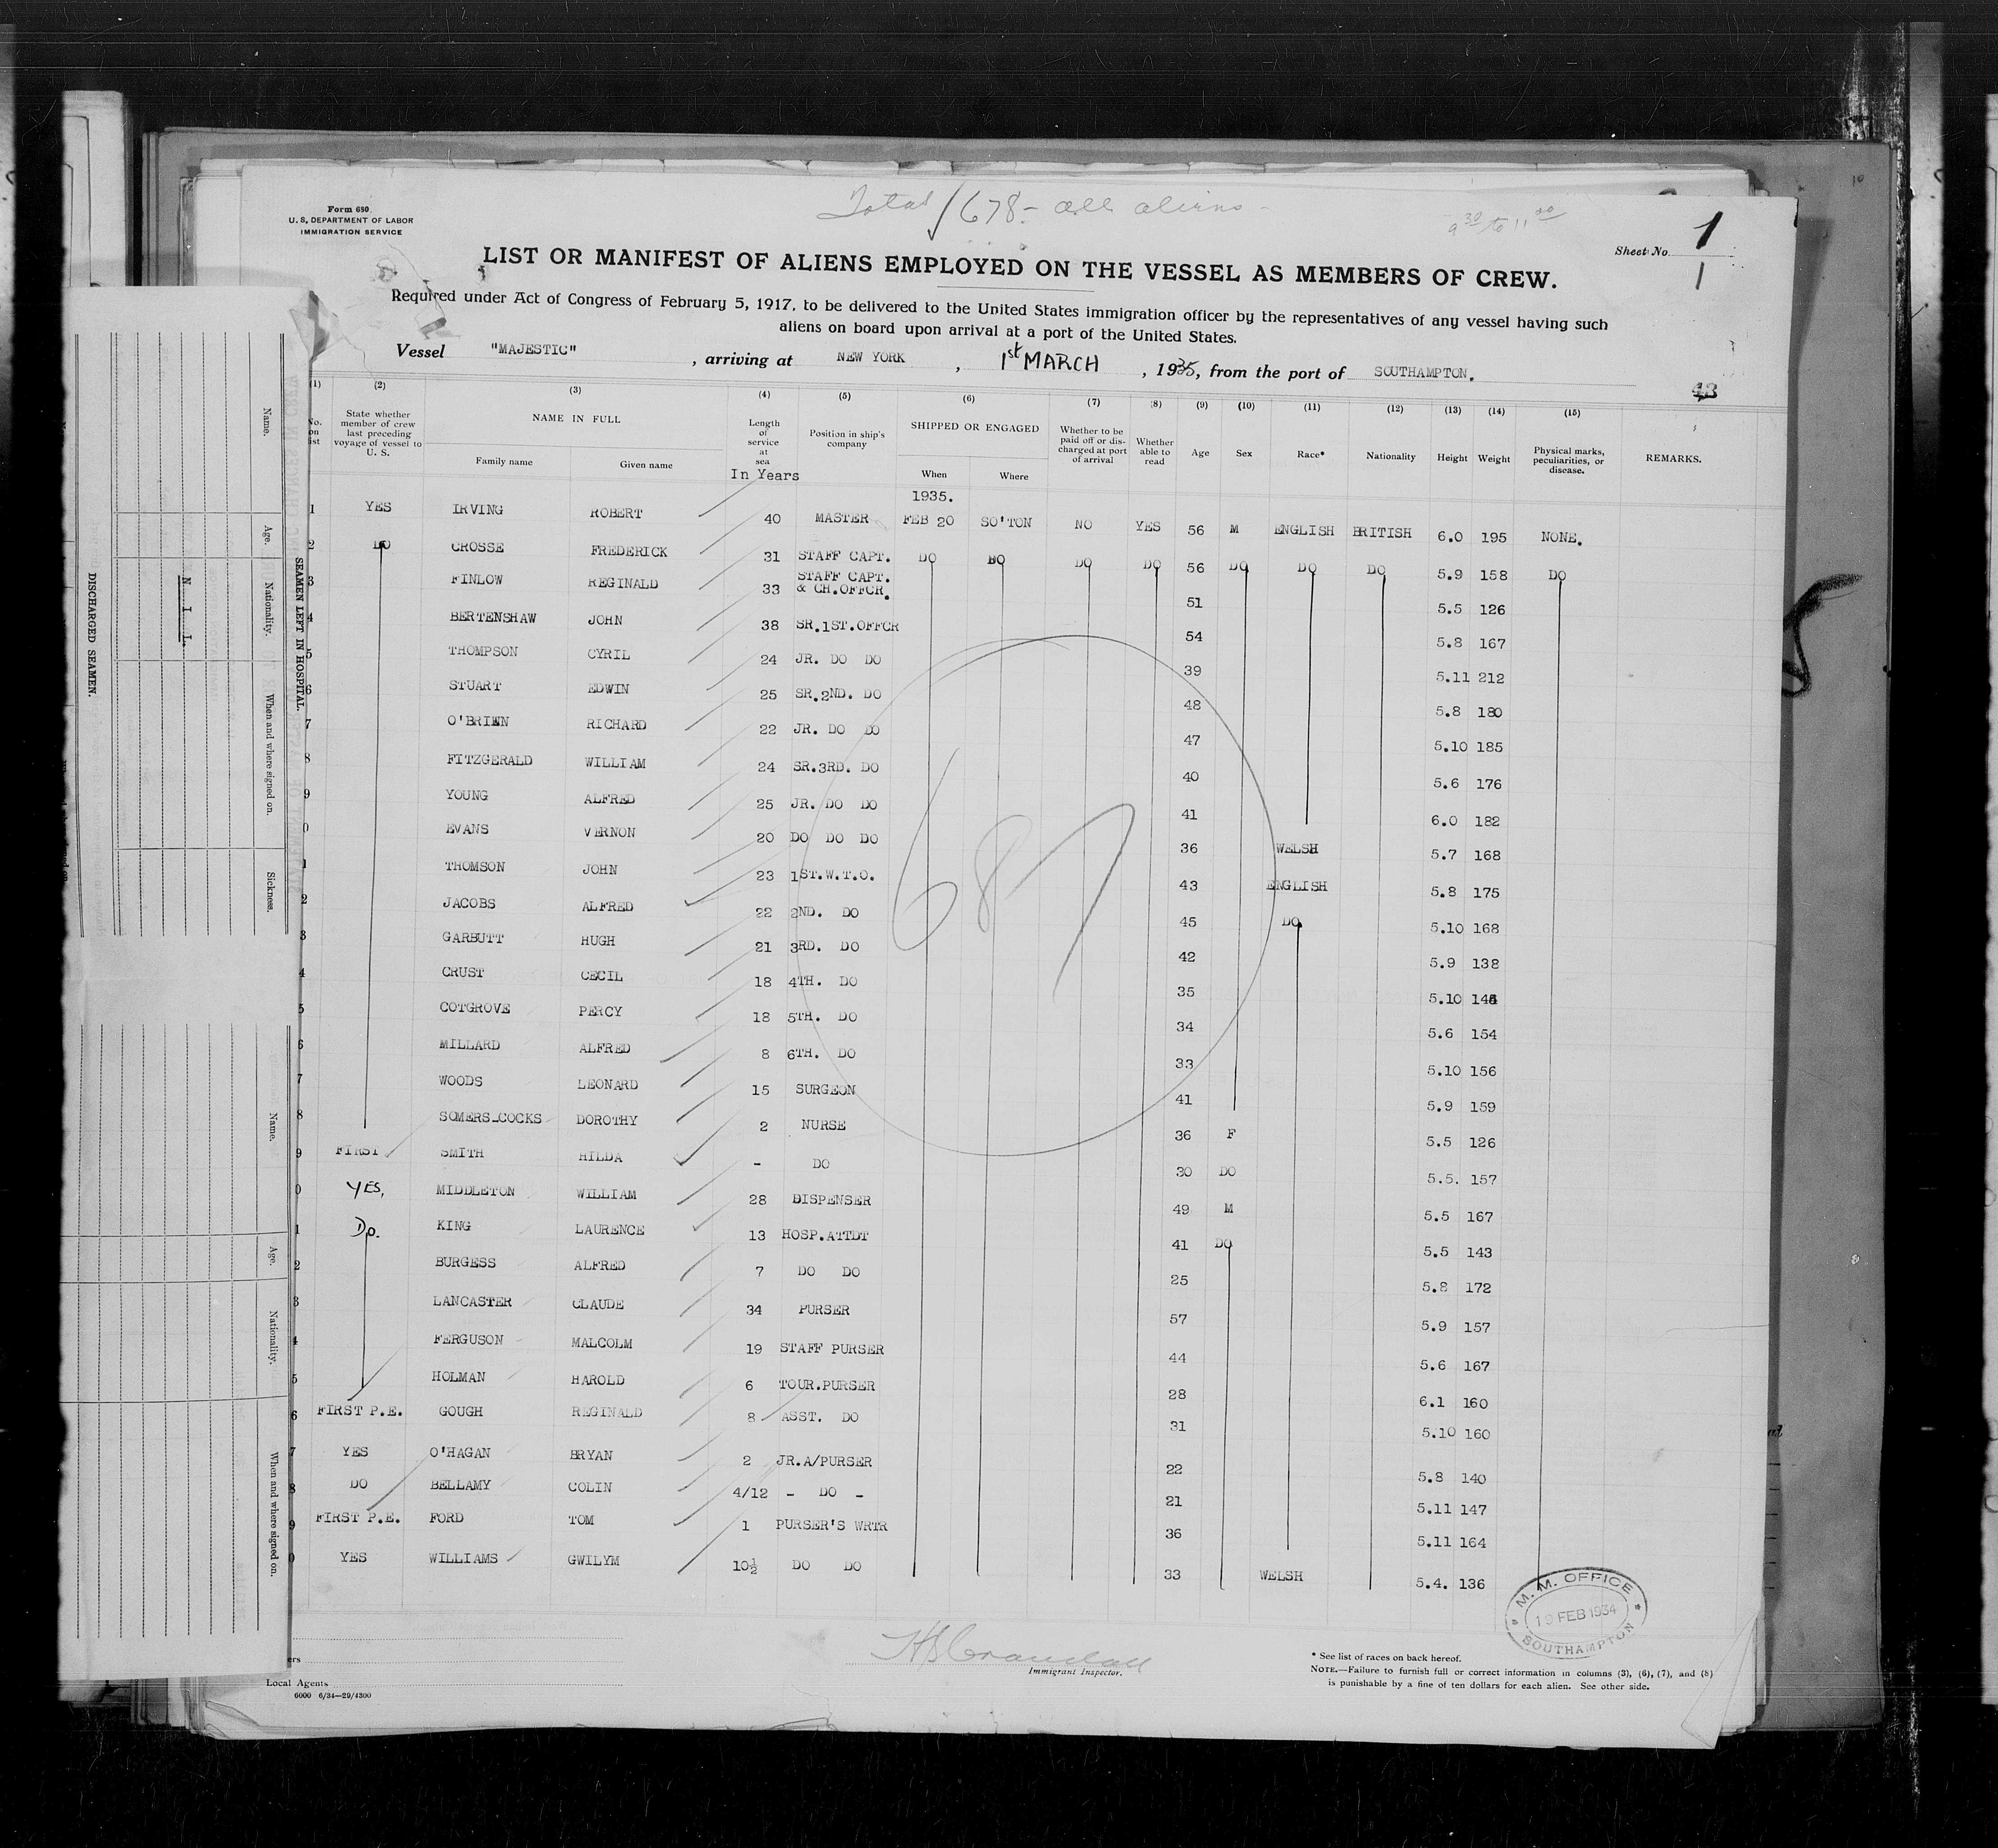 Total 678 - all aliens -
9 30 to 11 00
Form 680
U. S. DEPARTMENT OF LABOR
IMMIGRATION SERVICE
Sheet No. 1
1
LIST OR MANIFEST OF ALIENS EMPLOYED ON THE VESSEL AS MEMBERS OF CREW.
Required under Act of Congress of February 5, 1917, to be delivered to the United States immigration officer by the representatives of any vessel having such
aliens on board upon arrival at a port of the United States.
Vessel "MAJESTIC", arriving at NEW YORK, 1st MARCH, 1935, from the port of SOUTHAMPTON.
43
(1) (2) (3) (4) (5) (6) (7) (8) (9) (10) (11) (12) (13) (14) (15)
No. on list
State whether member of crew last preceding voyage of vessel to U. S.
NAME IN FULL
Family name
Given name
Length of service at sea
In Years
Position in ship's company
SHIPPED OR ENGAGED
When
Where
Whether to be paid off or discharged at port of arrival
Whether able to read
Age
Sex
Race*
Nationality
Height
Weight
Physical marks, peculiarities, or disease.
REMARKS.
1935.
1 YES IRVING ROBERT 40 MASTER FEB 20 SO'TON NO YES 56 M ENGLISH BRITISH 6.0 195 NONE.
2 DO CROSSE FREDERICK 31 STAFF CAPT. DO DO DO DO 56 DO DO DO 5.9 158 DO
3 FINLOW REGINALD 33 STAFF CAPT. & CH.OFFCR. 51 5.5 126
4 BERTENSHAW JOHN 38 SR.1ST.OFFCR 54 5.8 167
5 THOMPSON CYRIL 24 JR. DO DO 39 5.11 212
6 STUART EDWIN 25 SR.2ND. DO 48 5.8 180
7 O'BRIEN RICHARD 22 JR. DO DO 47 5.10 185
8 FITZGERALD WILLIAM 24 SR.3RD. DO 40 5.6 176
9 YOUNG ALFRED 25 JR. DO DO 41 6.0 182
0 EVANS VERNON 20 DO DO DO 36 WELSH 5.7 168
1 THOMSON JOHN 23 1ST.W.T.O. 43 ENGLISH 5.8 175
2 JACOBS ALFRED 22 2ND. DO 45 DO 5.10 168
3 GARBUTT HUGH 21 3RD. DO 42 5.9 138
4 CRUST CECIL 18 4TH. DO 35 5.10
5 COTGROVE PERCY 18 5TH. DO 34 5.6 154
6 MILLARD ALFRED 8 6TH. DO 33 5.10 156
7 WOODS LEONARD 15 SURGEON 41 5.9 159
8 SOMERS-COCKS DOROTHY 2 NURSE 36 F 5.5 126
9 FIRST SMITH HILDA - DO 30 DO 5.5. 157
0 YES, MIDDLETON WILLIAM 28 DISPENSER 49 M 5.5 167
1 Do. KING LAURENCE 13 HOSP.ATTDT 41 DO 5.5 143
2 BURGESS ALFRED 7 DO DO 25 5.8 172
3 LANCASTER CLAUDE 34 PURSER 57 5.9 157
4 FERGUSON MALCOLM 19 STAFF PURSER 44 5.6 167
5 HOLMAN HAROLD 6 TOUR.PURSER 28 6.1 160
6 FIRST P.E. GOUGH REGINALD 8 ASST. DO 31 5.10 160
7 YES O'HAGAN BRYAN 2 JR.A/PURSER 22 5.8 140
8 DO BELLAMY COLIN 4/12 - DO - 21 5.11 147
9 FIRST P.E. FORD TOM 1 PURSER'S WRTR 36 5.11 164
0 YES WILLIAMS GWILYM 10½ DO DO 33 WELSH 5.4. 136
687
M. M. OFFICE
19 FEB 1934
SOUTHAMPTON
Immigrant Inspector.
* See list of races on back hereof.
NOTE.—Failure to furnish full or correct information in columns (3), (6), (7), and (8)
is punishable by a fine of ten dollars for each alien. See other side.
Local Agents
6000 6/34—29/4300
SEAMEN LEFT IN HOSPITAL.
Name.
Age.
Nationality.
When and where signed on.
Sickness.
N I L.
DISCHARGED SEAMEN.
Name.
Age.
Nationality.
When and where signed on.